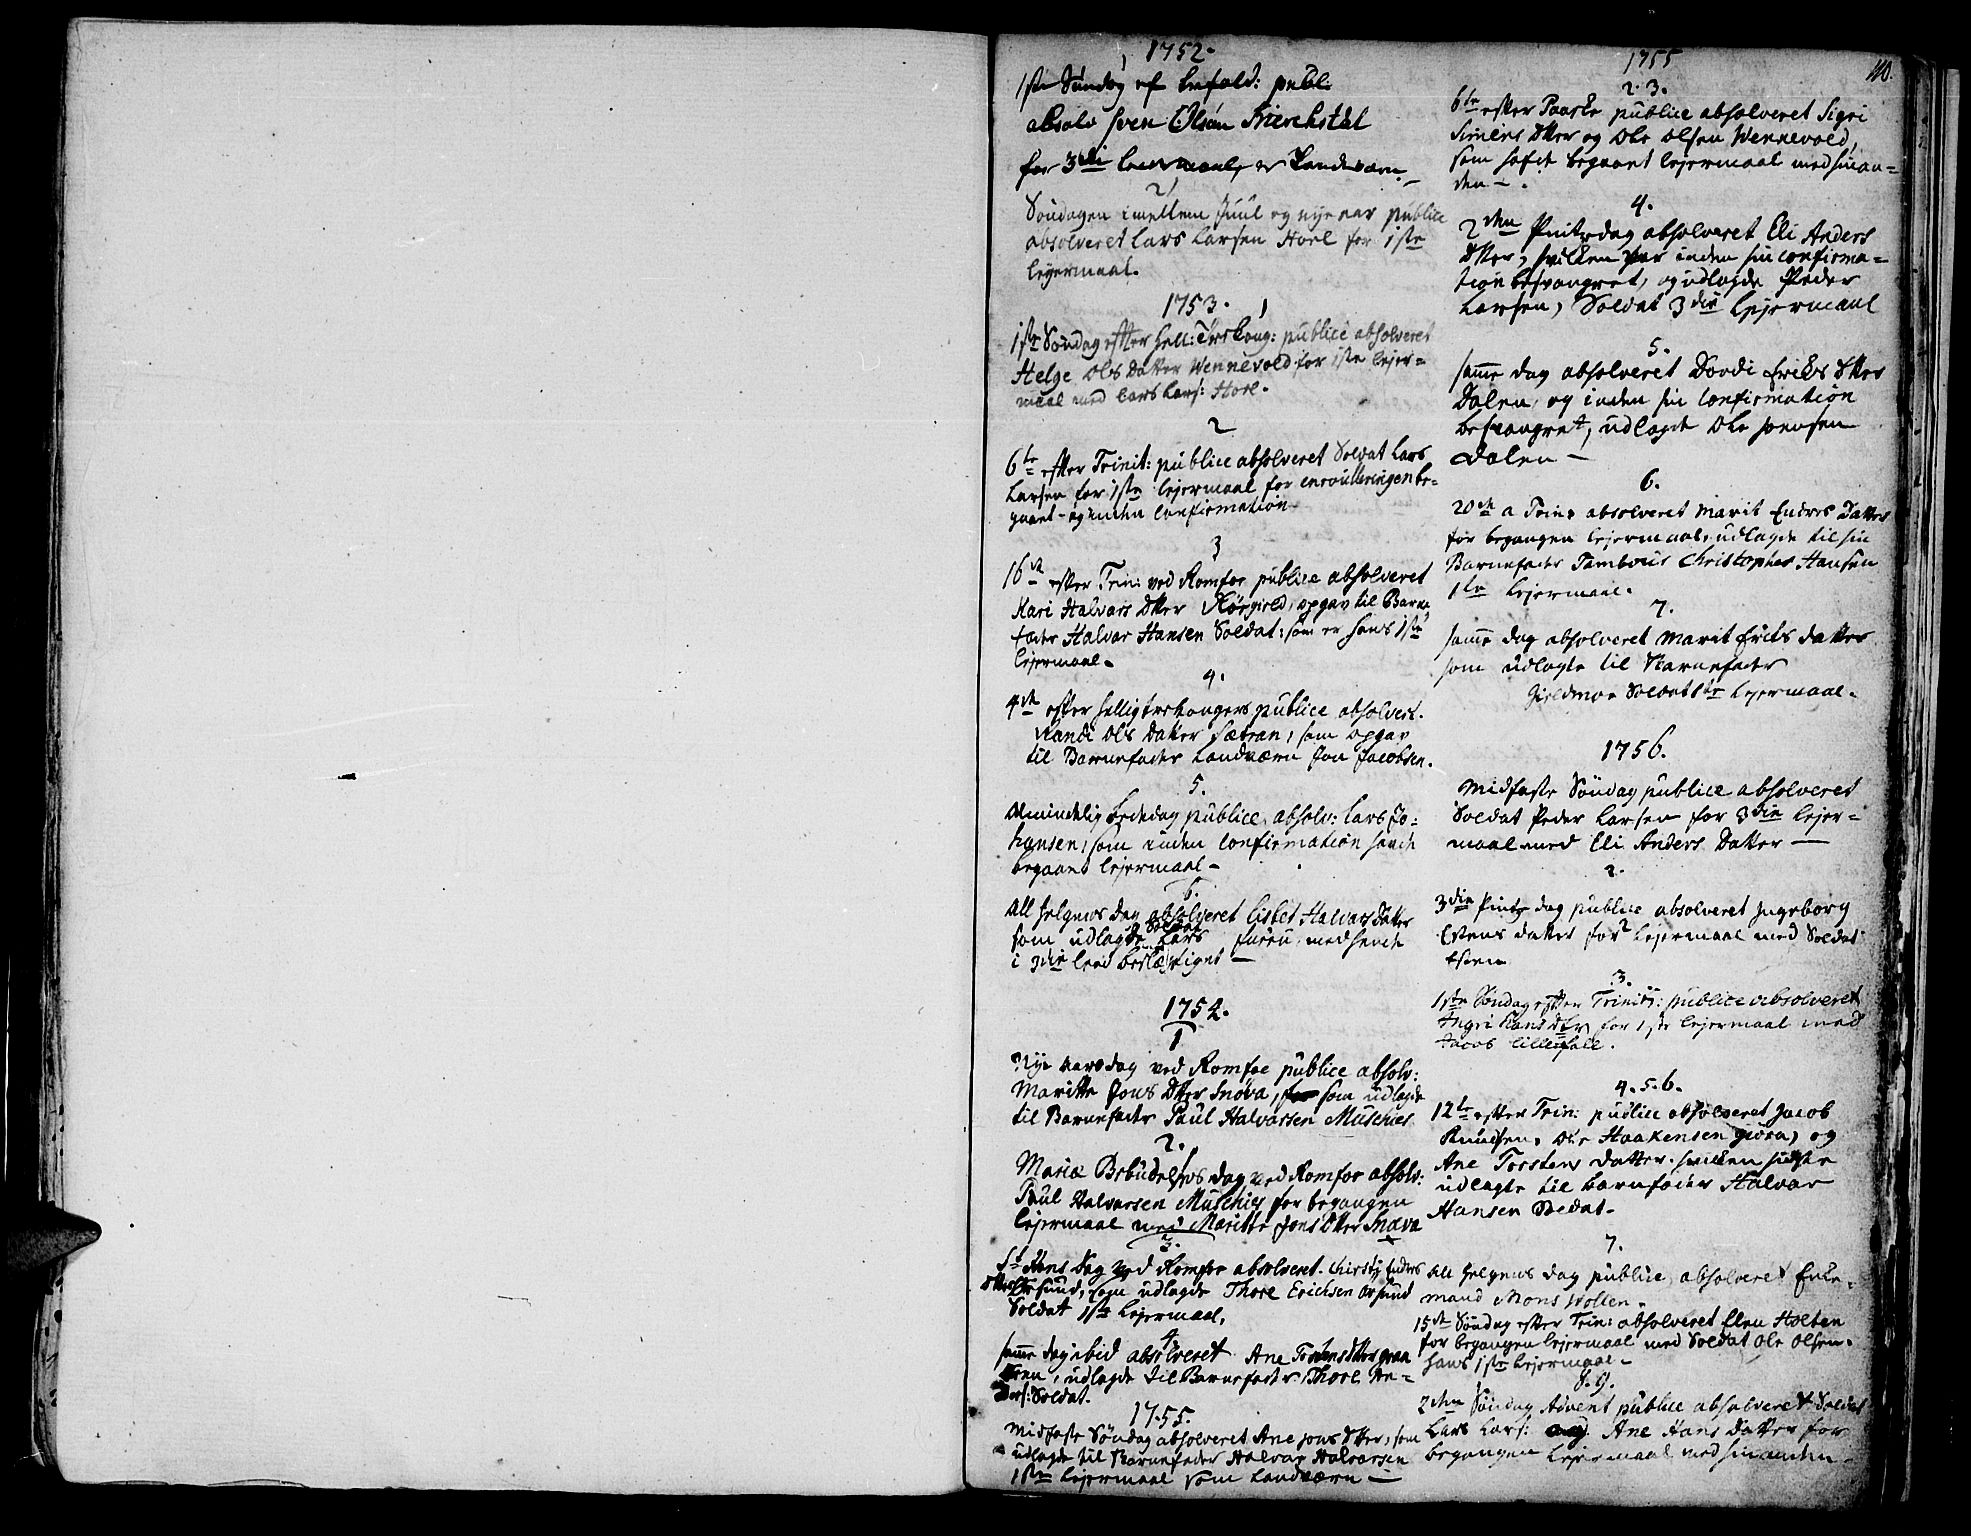 1752.
1
1ste Søndag ef
absolv Sven Olsen
for 3die Leiermaal, er Landværn.
2
Søndagen imellem Juul og nyeaar publice
absolveret Lars Larsen Hoel for 1ste
lejermaal.
1753.
1
1ste Søndag efter Hell: Tre Kong: publice absolveret
Helge Ols Datter Wennevold for 1ste lejer=
maal med Lars Lars: Hoel.
2
6te efter Trinit: publice absolveret Soldat Lars
Larsen for 1ste lejermaal for enroulleringen be=
gaaet - og inden Confirmation
3
16de efter Trin: ved Romfoe publice absolveret
Kari Halvors Dtter opgav til Barne
fader Halvor Hansen Soldat: som er hans 1ste
lejermaal.
4.
4de efter Helligtrekongers publice absolvert.
Randi Ols Datter Sætran, som opgav
til Barnefader Landværn Jon Jacobsen.
5.
Almindelig Bededag publice absolv: Lars Jo=
hansen, som inden Confirmation havde
begaaet lejermaal -
6.
All Helgens Dag absolveret Lisbet Halvars Datter
som udlagde Soldat Lars Furru, med hende
i 3die Leed beslægtiget —
1754.
1
Nye aars dag ved Romfoe publice absolv:
Maritte Jons Dtter Snøva, som udlagde
til Barnefader Paul Halvarsen Muschies
2.
Mariæ Bebudelses dag ved Romfoe absolv:
Paul Halvarsen Muschies for begangen
lejermaal med Maritte Jons Dtter Snøva
3.
St Hans Dag ved Romfoe absolveret. Kirsty Enders
Dtter Orsund, som udlagde Thore Erichsen Orsund
Soldat 1ste Lejermaal,
4.
samme dag ibid absolveret Ane Torstens Dtter
udlagde til Barnefader Thore An=
Soldat.
1755.
Midfaste Søndag absolveret Ane Jons Dtter, som
udlagde til Barnefader Halvar Halvarsen
1ste Lejermaal som Landværn —
110.
1755
2. 3.
6te efter Paaske publice absolveret Sigri
Simens Dtter og Ole Olsen Wennevold,
som hafde begaaet lejermaal med hinan=
den — .
4.
2den Pintzdag absolveret Eli Anders
Dtter, hvilken var inden sin confirma=
tion besvangret, og udlagde Peder
Larsen, Soldat 3die Lejermaal
5.
samme dag absolveret Dordi Eriks Dtter
Dalen og inden sin Confirmation
besvangret, udlagde Ole Joensen
Dalen —
6.
20de a Trin: absolveret Marit Endres Datter
for begangen lejermaal, udlagde til sin
Barnefader Tambour Christopher Hansen
1ste Lejermaal.
7.
samme dag absolveret Marit Eriks Datter
som udlagte til Barnefader
Soldat 1ste Lejermaal.
1756.
Midfaste Søndag publice absolveret
Soldat Peder Larsen for 3die lejer=
maal med Eli Anders Datter —
2.
3die Pintz dag publice absolveret Ingeborg
Estens Datter for lejermaal med Soldat
3.
1ste Søndag efter Trinit: publice absolveret
Ingri Hans Dtr for 1ste lejermaal med
Jacob Lillefale.
4. 5. 6.
12te efter Trin: publice absolveret Jacob
Knudsen, Ole Haakensen Giøra, og
Ane Torstens Datter, hvilken sidste
udlagte til barnfader Halvar
Hansen Soldat.
7.
All Helgens dag publice absolveret Enke=
mand Mons Wollen.
15de Søndag efter Trin: absolveret Elen Holten
for begangen lejermaal med Soldat Ole Olsen.
hans 1ste lejermaal -
8. 9.
2den Søndag Advent publice absolveret Soldat
Lars Lars: og Ane Hans Datter for
begangen Lejermaal med hinanden -